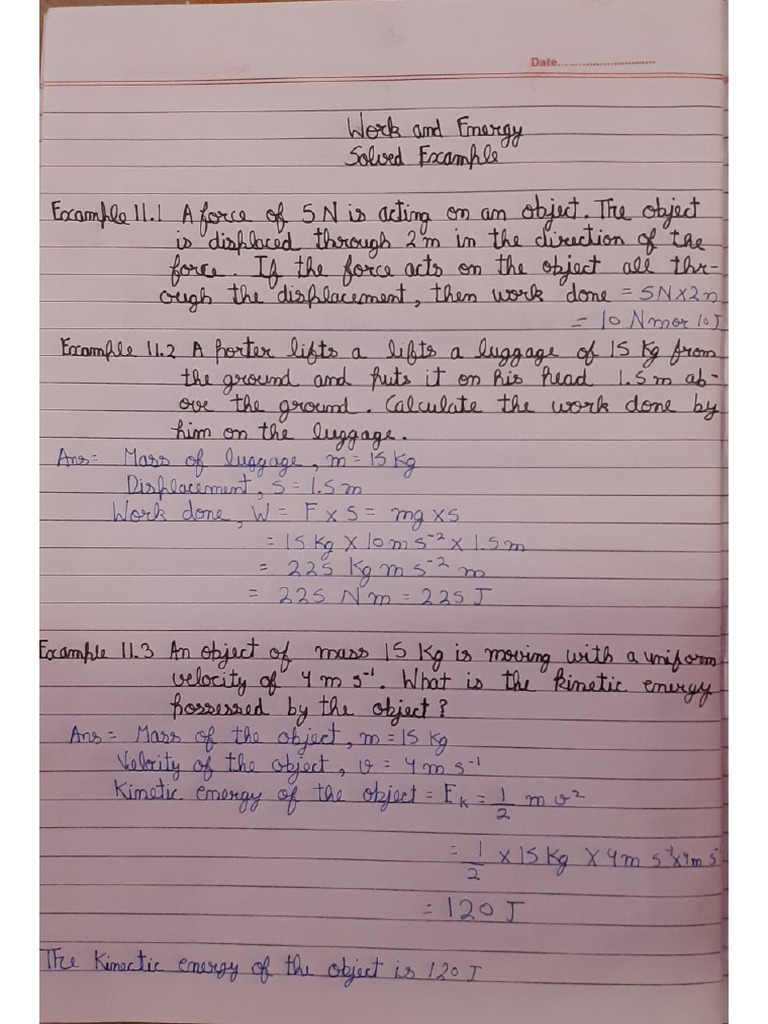 Date..............................
Work and Energy
Solved Example
Example 11.1 A force of 5 N is acting on an object. The object
is displaced through 2 m in the direction of the
force. If the force acts on the object all thr-
ough the displacement, then work done = 5N×2n
= 10 Nmor 10J
Example 11.2 A porter lifts a lifts a luggage of 15 Kg from
the ground and puts it on his head 1.5 m ab-
ove the ground. Calculate the work done by
him on the luggage.
Ans= Mass of luggage, m = 15 Kg
Displacement, s = 1.5 m
Work done, W = F × S = mg × s
= 15 Kg × 10 m s⁻² × 1.5 m
= 225 Kg m s⁻² m
= 225 N m = 225 J
Example 11.3 An object of mass 15 Kg is moving with a uniform
velocity of 4 m s⁻¹. What is the kinetic energy
possessed by the object?
Ans= Mass of the object, m = 15 Kg
Velocity of the object, v = 4 m s⁻¹
Kinetic energy of the object = E_K = 1/2 m v²
= 1/2 × 15 Kg × 4 m s⁻¹ × 4 m s⁻
= 120 J
The Kinectic energy of the object is 120 J